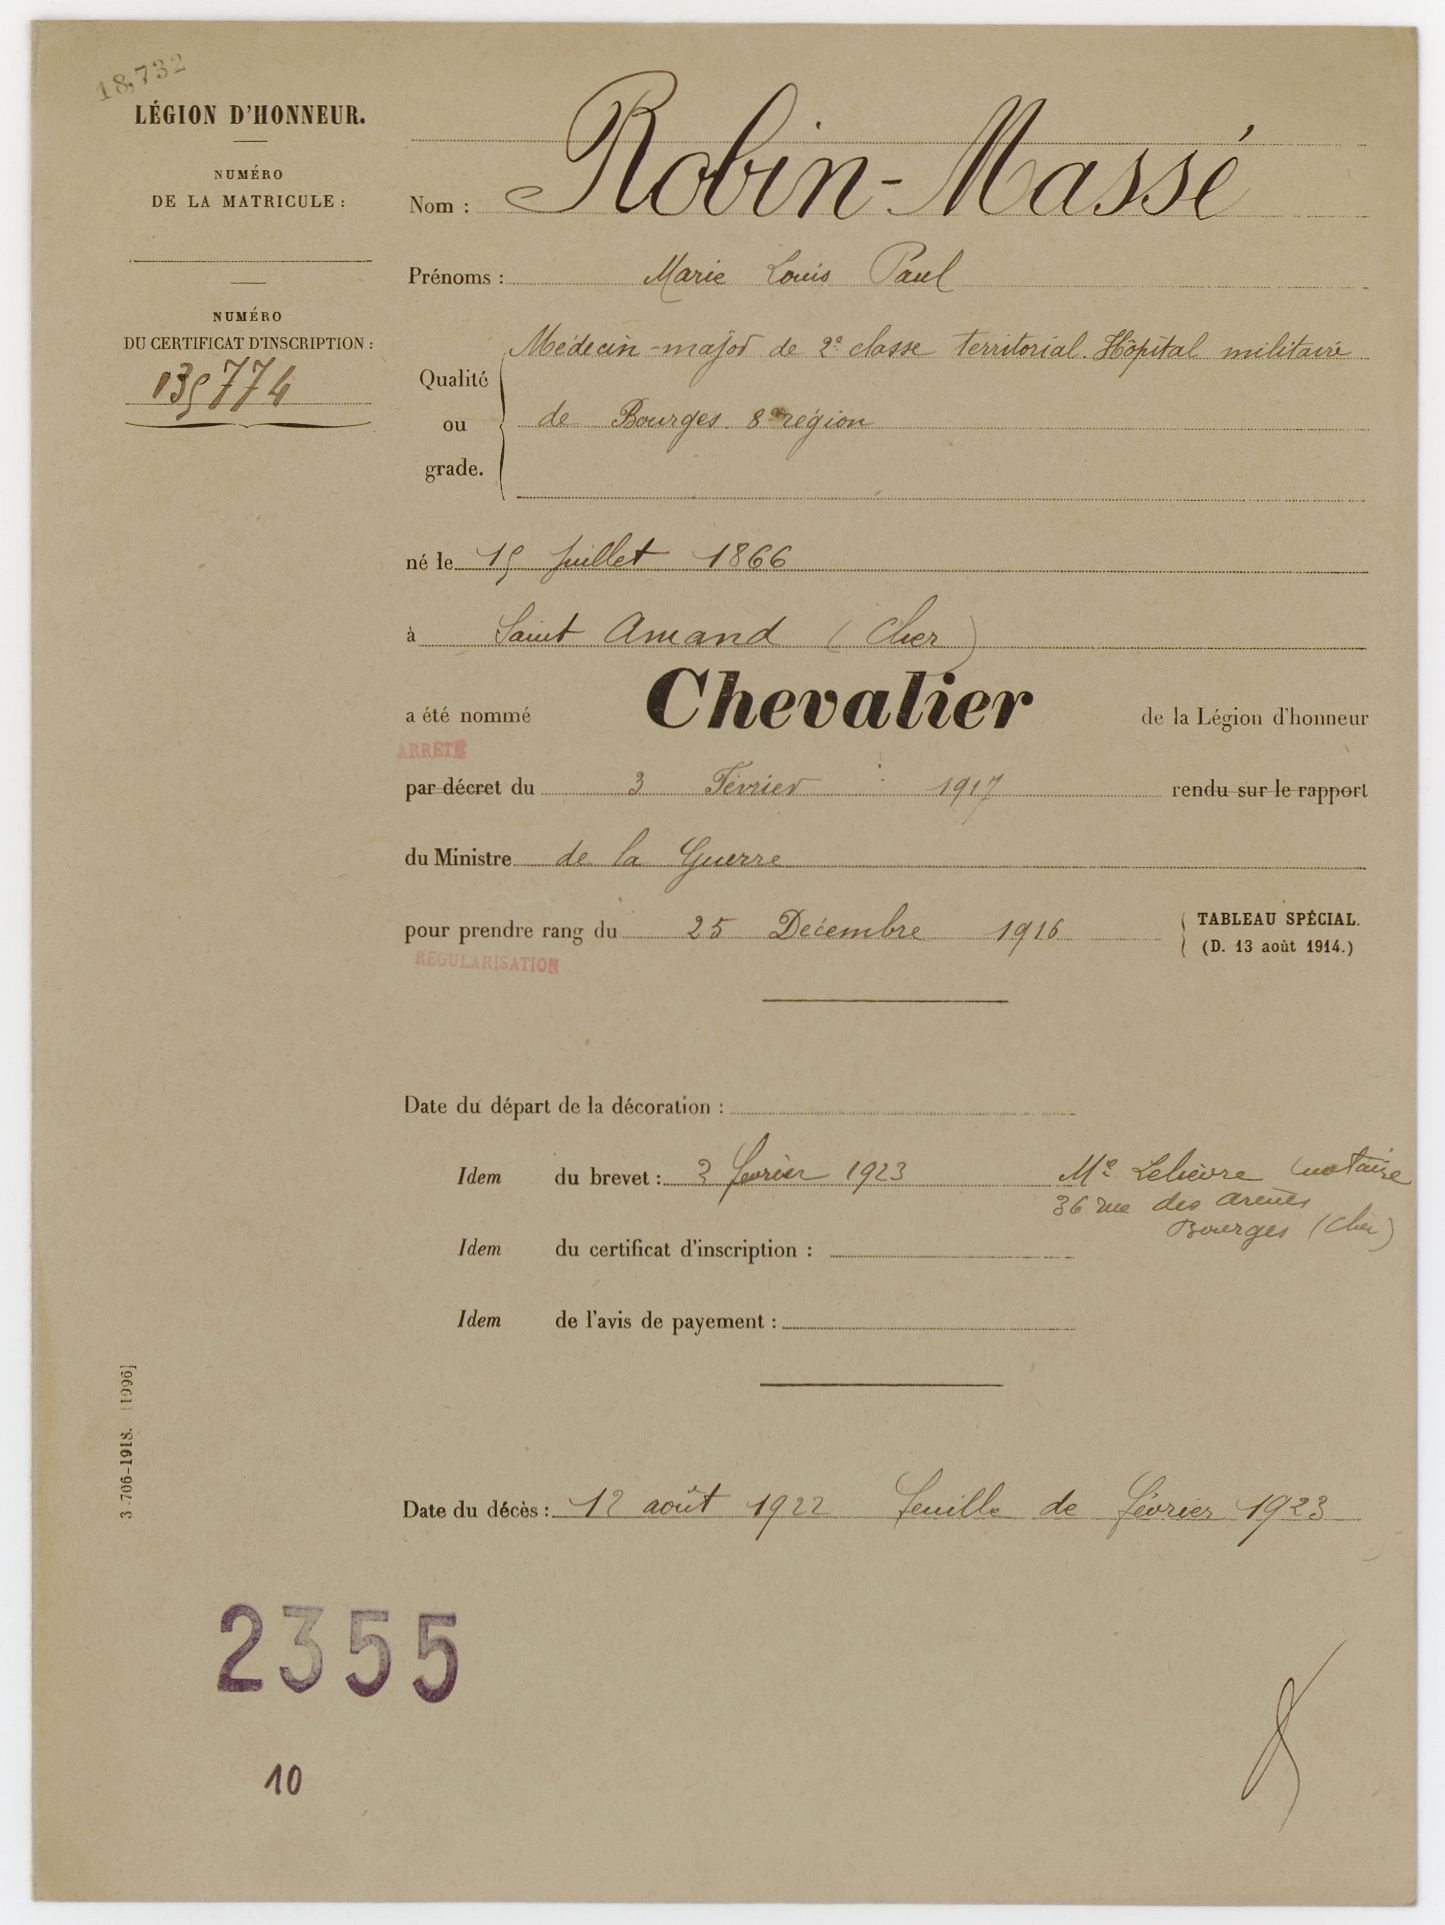 18,732
LÉGION D'HONNEUR.
NUMÉRO
DE LA MATRICULE :
NUMÉRO
DU CERTIFICAT D'INSCRIPTION :
135774
Nom : Robin-Massé
Prénoms : Marie Louis Paul
Qualité
ou
grade.
Médecin-major de 2e classe territorial. Hôpital militaire
de Bourges. 8e région
né le 15 Juillet 1866
à Saint Amand (Cher)
a été nommé Chevalier de la Légion d'honneur
ARRÊTÉ
par décret du 3 Février 1917 rendu sur le rapport
du Ministre de la Guerre
pour prendre rang du 25 Décembre 1916
TABLEAU SPÉCIAL.
(D. 13 août 1914.)
RÉGULARISATION
Date du départ de la décoration :
Idem du brevet : 3 février 1923
Me Lelièvre notaire
36 rue des Arènes
Bourges (Cher)
Idem du certificat d'inscription :
Idem de l'avis de payement :
Date du décès : 12 août 1922 feuille de février 1923
3-706-1918. [1996]
2355
10